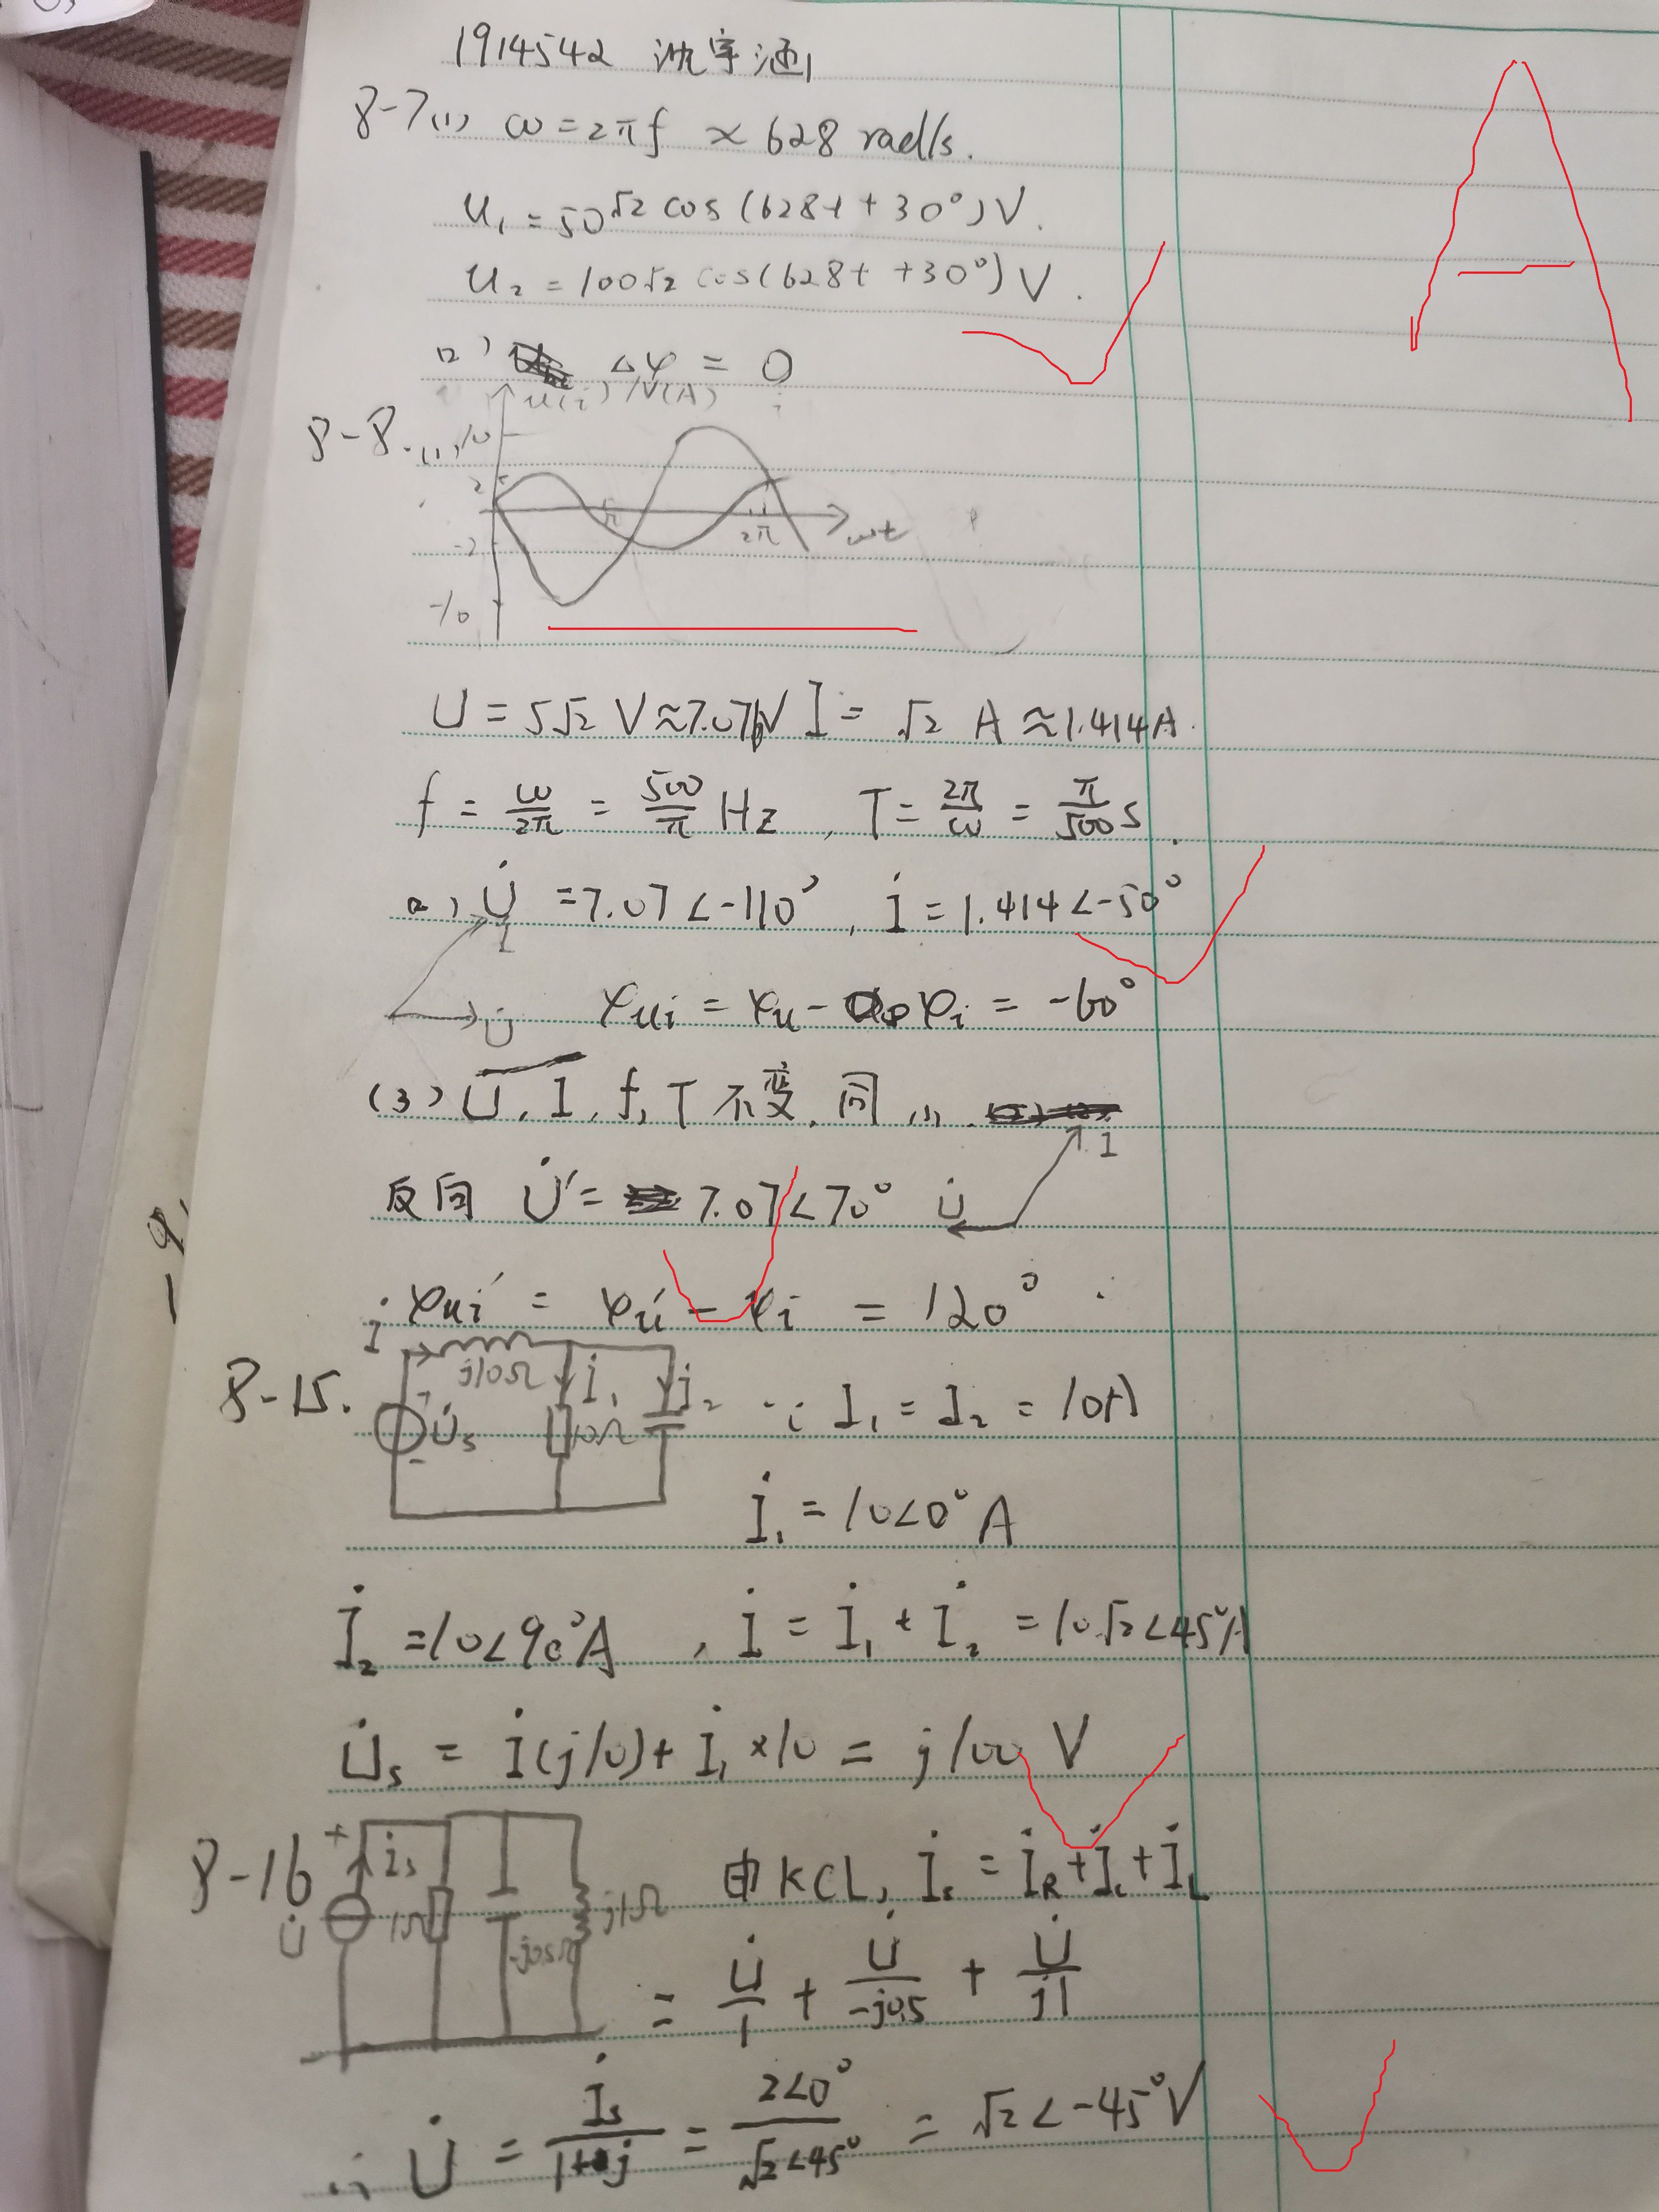 1914542 沈宇涵
8-7(1) ω=2πf ≈ 628 rad/s.
u₁ = 50√2 cos(628t+30°)V.
u₂ = 100√2 cos(628t+30°)V.
(2) Δφ = 0
8-8.(1) u(i)/V(A)
10
2
π
2π
ωt
-2
-10
U = 5√2 V ≈ 7.07V I = √2 A ≈ 1.414A.
f = ω/2π = 500/π Hz, T = 2π/ω = π/500 s.
(2) U̇ = 7.07∠-110°, İ = 1.414∠-50°
İ
U̇
φui = φu - φi = -60°
(3) U, I, f, T 不变, 同(1).
反向 U̇' = 7.07∠70° U̇
İ
φui' = φu' - φi = 120°
8-15.
İ j10Ω İ₁ İ₂
+ U̇s - 10Ω
∵ I₁ = I₂ = 10A
İ₁ = 10∠0° A
İ₂ = 10∠90° A, İ = İ₁ + İ₂ = 10√2∠45° A
U̇s = İ(j10) + İ₁×10 = j100 V
8-16 + İs
U̇ 1Ω -j0.5Ω j1Ω
由KCL, İs = İR + İc + İL
= U̇/1 + U̇/-j0.5 + U̇/j1
∴ U̇ = İs/1+j = 2∠0°/√2∠45° = √2∠-45° V
A